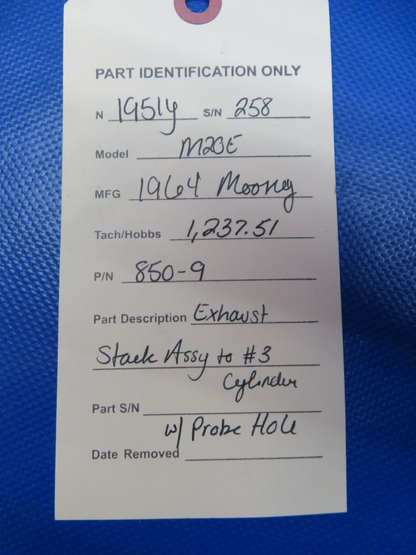 PART IDENTIFICATION ONLY
N 1951Y S/N 258
Model M20E
MFG 1964 Mooney
Tach/Hobbs 1,237.51
P/N 850-9
Part Description Exhaust
Stack Assy to #3
Cylinder
Part S/N
w/ Probe Hole
Date Removed